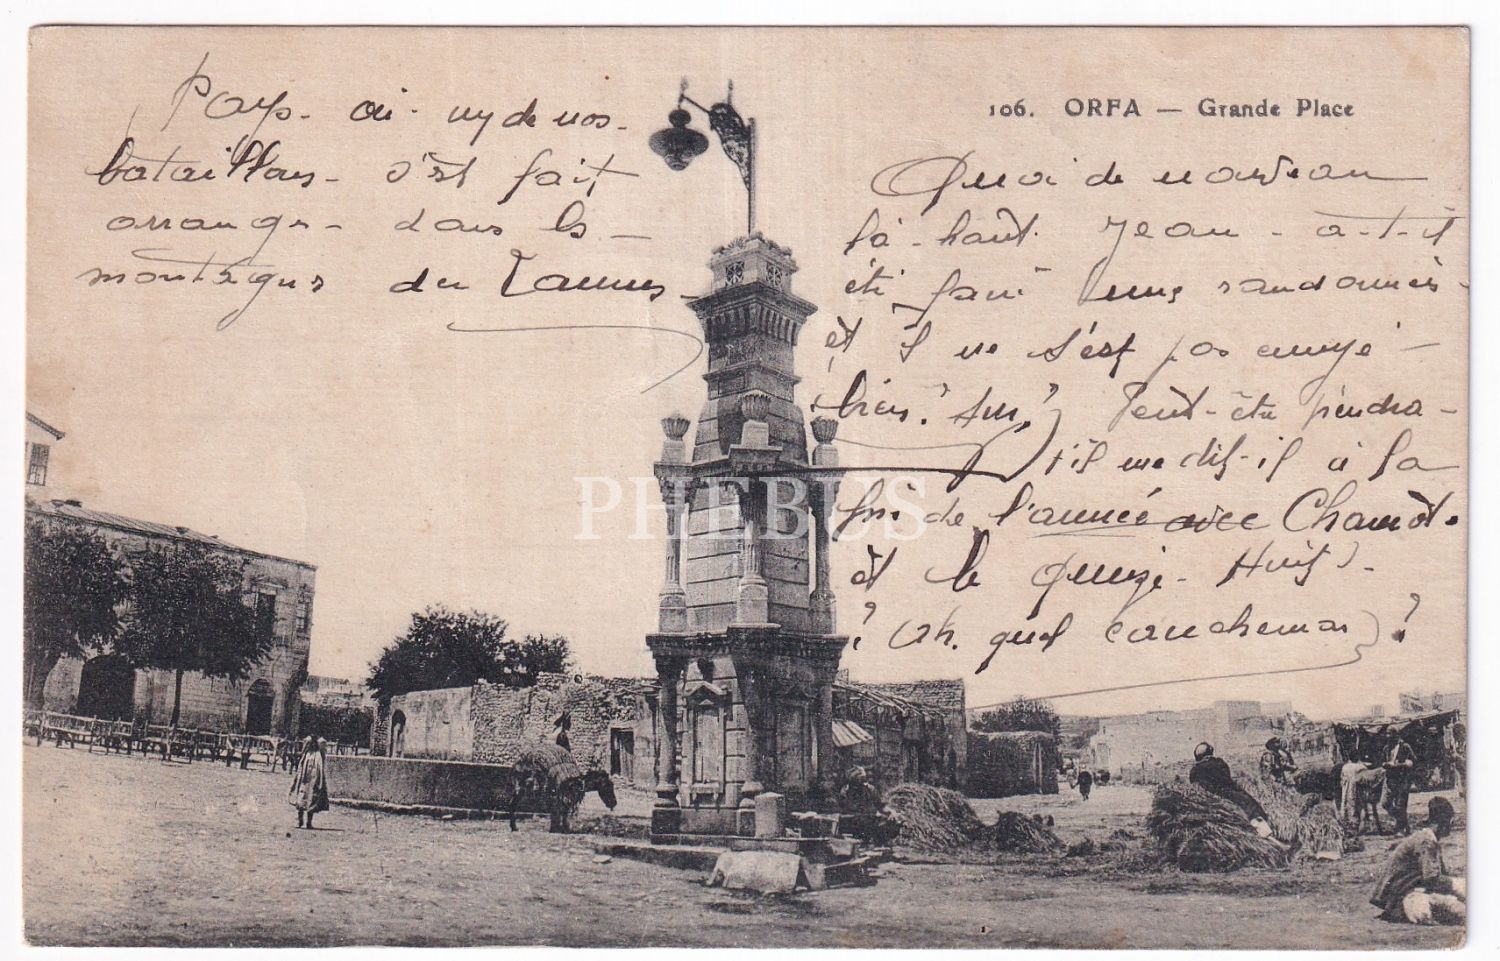 106. ORFA — Grande Place
Pays. où. un de nos.
bataillons. s'est fait
arranger. dans les
montagnes du Taurus
Quoi de nouveau
là-haut. Jean. a-t-il
été faire une randonnée.
et il ne s'est pas ennuyé
bien? sur? Peut-être
t'il me dit-il à la
fin de l'année avec
et le Quinze. Huit.
? Oh. quel cauchemar?
PHEBUS